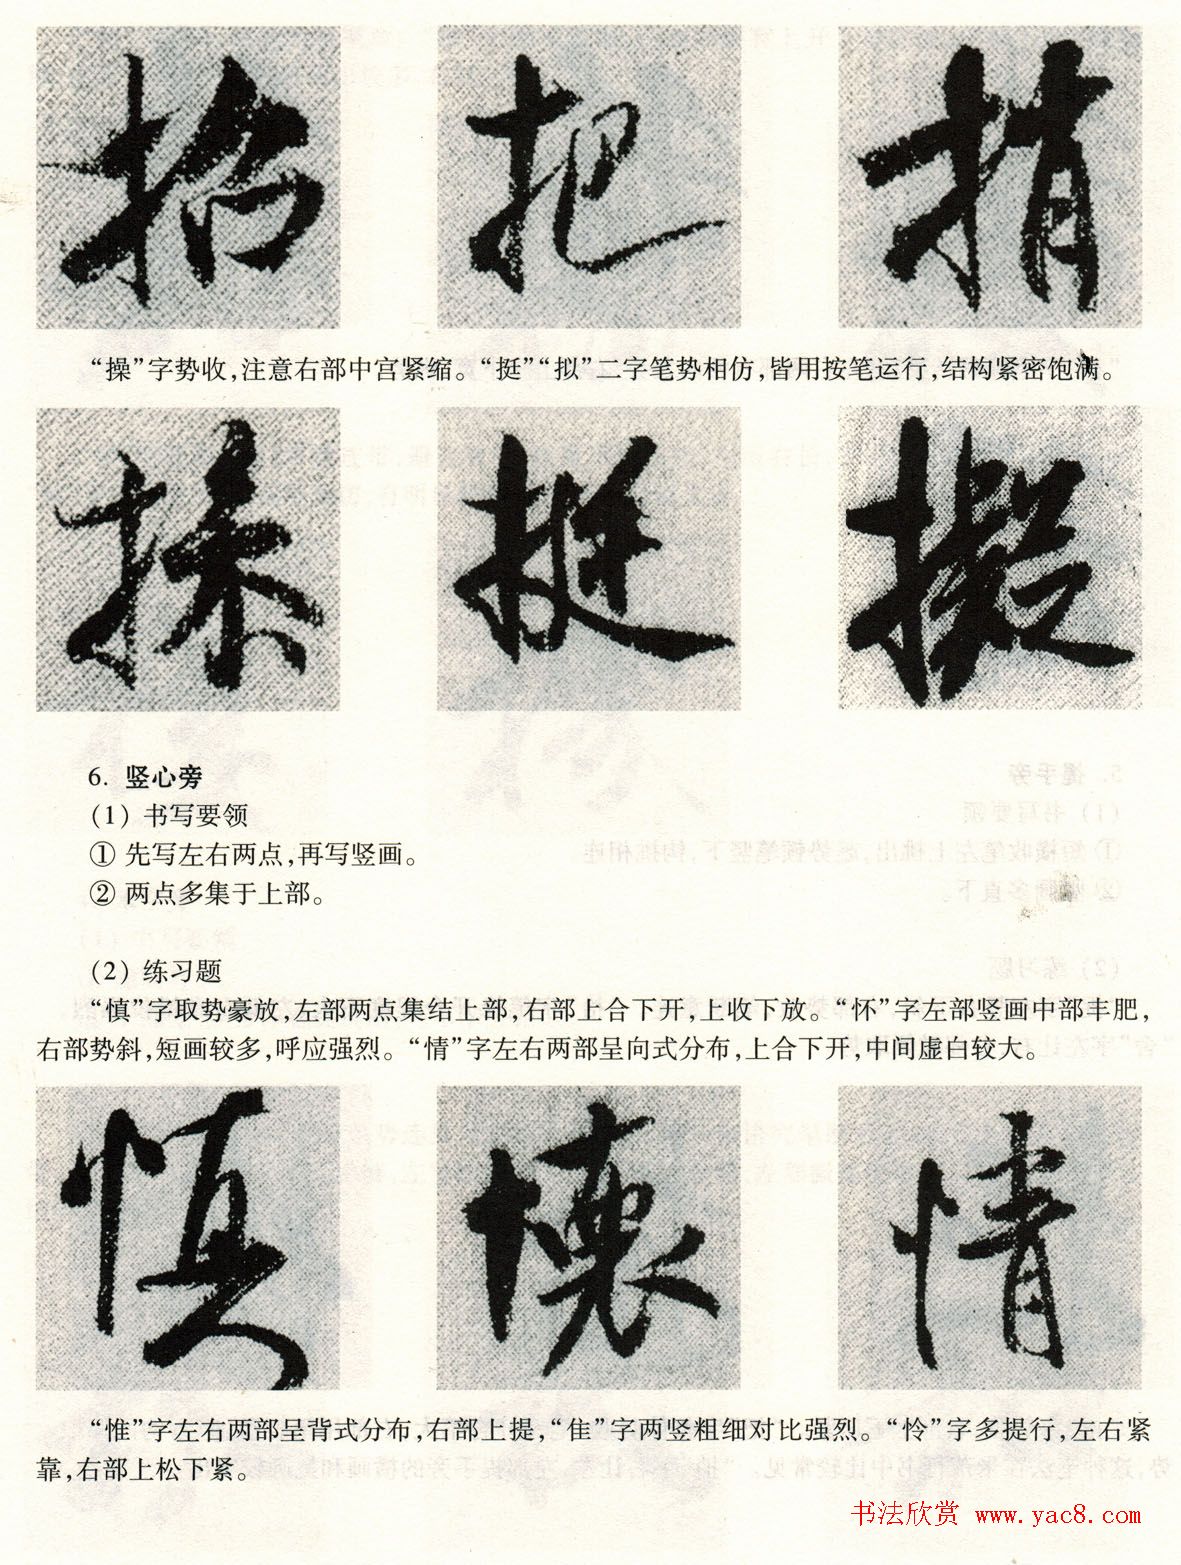 招 把 捎
“操”字势收,注意右部中宫紧缩。“挺”“拟”二字笔势相仿,皆用按笔运行,结构紧密饱满。
操 挺 擬
6. 竖心旁
(1) 书写要领
① 先写左右两点,再写竖画。
② 两点多集于上部。
(2) 练习题
“慎”字取势豪放,左部两点集结上部,右部上合下开,上收下放。“怀”字左部竖画中部丰肥,
右部势斜,短画较多,呼应强烈。“情”字左右两部呈向式分布,上合下开,中间虚白较大。
慎 懷 情
“惟”字左右两部呈背式分布,右部上提,“隹”字两竖粗细对比强烈。“怜”字多提行,左右紧
靠,右部上松下紧。
书法欣赏 www.yac8.com